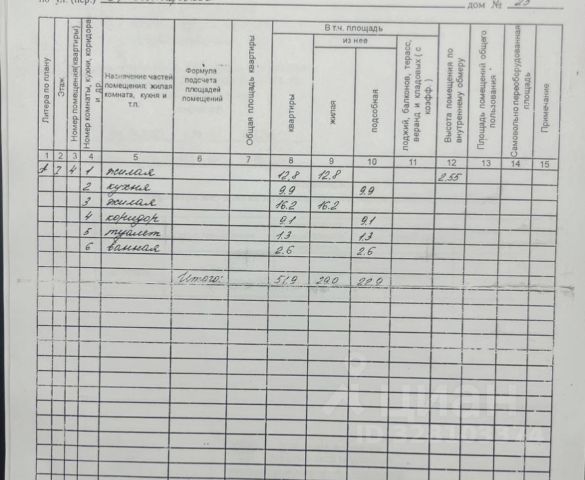 дом № 23
Литера по плану
Этаж
Номер помещения(квартиры)
Номер комнаты, кухни, коридора и др.
Назначение частей помещения: жилая комната, кухня и т.п.
Формула подсчета площадей помещений
Общая площадь квартиры
В т.ч. площадь
из нее
квартиры
жилая
подсобная
лоджий, балконов, терасс, веранд и кладовых ( с коэфф. )
Высота помещения по внутреннему обмеру
Площадь помещений общего пользования
Самовольно переоборудованная площадь
Примечание
1 2 3 4 5 6 7 8 9 10 11 12 13 14 15
4 1 жилая 12.8 12.8 2.55
2 кухня 9.9 9.9
3 жилая 16.2 16.2
4 коридор 9.1 9.1
5 туалет 1.3 1.3
6 ванная 2.6 2.6
Итого: 51.9 29.0 22.9